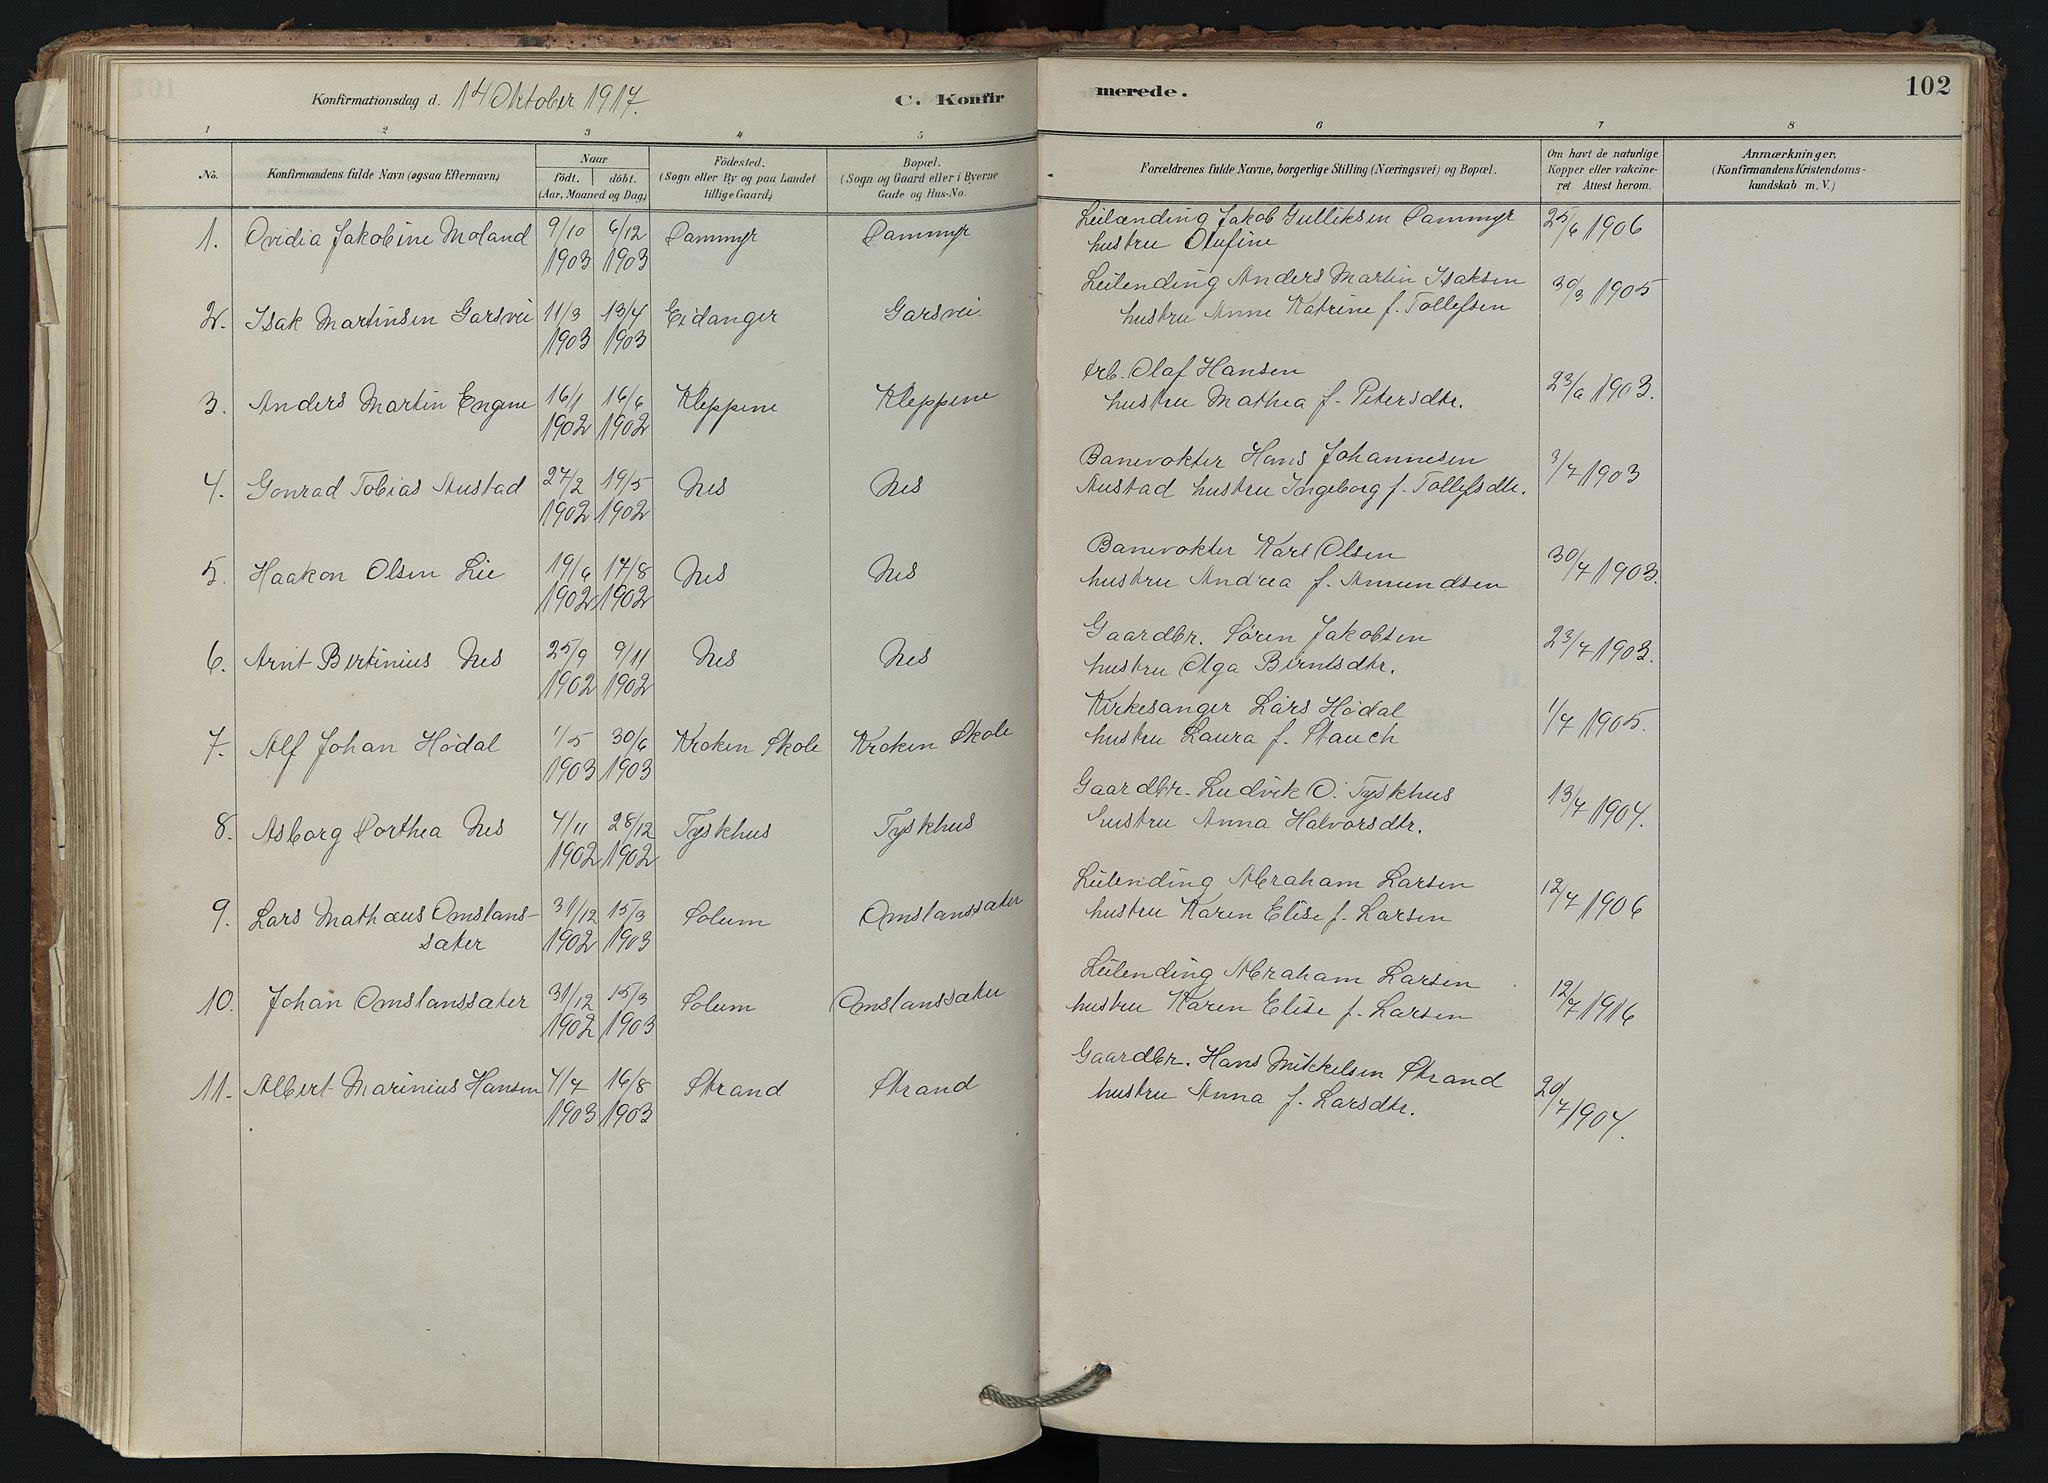 Konfirmationsdag d. 14 Oktober 1917.
C. Konfirmerede.
102
1 2 3 4 5 6 7 8
No.
Konfirmandens fulde Navn (ogsaa Efternavn)
Naar
födt. döbt.
(Aar, Maaned og Dag)
Födested.
(Sogn eller By og paa Landet
tillige Gaard)
Bopæl.
(Sogn og Gaard eller i Byerne
Gade og Hus-No.
Forældrenes fulde Navne, borgerlige Stilling (Næringsvei) og Bopæl.
Om havt de naturlige
Kopper eller vakcine-
ret Attest herom.
Anmærkninger.
(Konfirmandens Kristendoms-
kundskab m. V.)
1. Ovidia Jakobine Moland 9/10 1903 6/12 1903 Dammyr Dammyr
Leilænding Jakob Gulliksen Dammyr
hustru Olufine
25/6 1906
2. Isak Martinsen Garsvei 11/3 1903 13/4 1903 Eidanger Garsvei.
Leilending Anders Martin Isaksen
hustru Anne Katrine f. Tollefsen
30/3 1905
3. Anders Martin Engene 16/1 1902 16/6 1902 Kleppene Kleppene
Arb. Olaf Hansen
hustru Mathea f. Petersdtr.
23/6 1903.
4. Gonrad Tobias Austad 27/2 1902 19/5 1902 Nes Nes
Banevokter Hans Johannesen
Austad hustru Ingeborg f. Tollefsdtr.
3/7 1903
5. Haakon Olsen Lie 19/6 1902 17/8 1902 Nes Nes
Banevokter Karl Olsen
hustru Andrea f. Amundsen
30/7 1903.
6. Arnt Bertinius Nes 25/9 1902 9/11 1902 Nes Nes
Gaardbr. Søren Jakobsen
hustru Olga Berntsdtr.
23/7 1903.
7. Alf Johan Hødal 1/5 1903 30/6 1903 Kroken Skole Kroken Skole
Kirkesanger Lars Hødal
hustru Laura f. Stauch
1/7 1905.
8. Asborg Dorthea Nes 4/11 1902 28/12 1902 Tyskhus Tyskhus
Gaardbr. Ludvik O. Tyskhus
hustru Anna Halvorsdtr.
13/7 1904.
9. Lars Mathæus Omslans-
sæter 31/12 1902 15/3 1903 Solum Omslanssæter
Leilending Abraham Larsen
hustru Karen Elise f. Larsen
12/7 1906
10. Johan Omslanssæter 31/12 1902 15/3 1903 Solum Omslanssæter
Leilending Abraham Larsen
hustru Karen Elise f. Larsen
12/7 1916
11. Albert Marinius Hansen 4/7 1903 16/8 1903 Strand Strand
Gaardbr. Hans Mikkelsen Strand
hustru Anna f. Larsdtr.
20/7 1904.